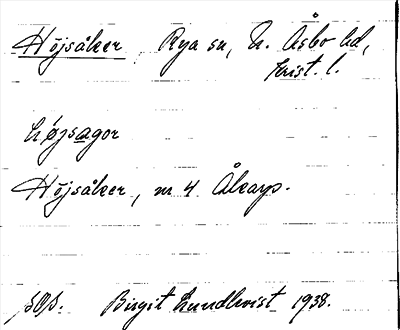 Höjsåker Rya sn, N. Åsbo hd,
Krist. l.
højsagor
Höjsåker, m 4 Åkarp.
Birgit Lundkvist 1938.